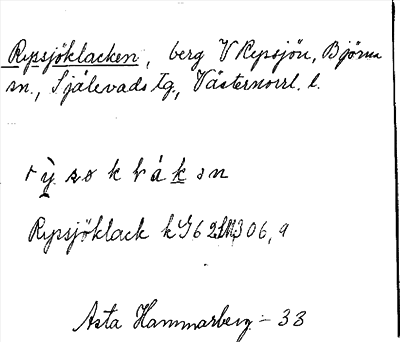 Rypsjöklacken, berg V Rypsjön, Björna
sn., Själevads tg., Västernorrl. l.
Rypsjöklack kG62 306,9
Asta Hammarberg - 33